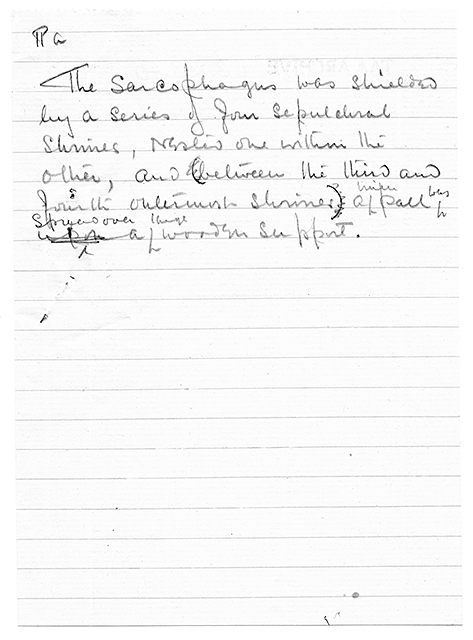 The Sarcophagus was shielded
by a series of four sepulchral
shrines, nested one within the
other, and (between the third and
fourth outermost shrines) a linen pall was
spread over a large wooden support.